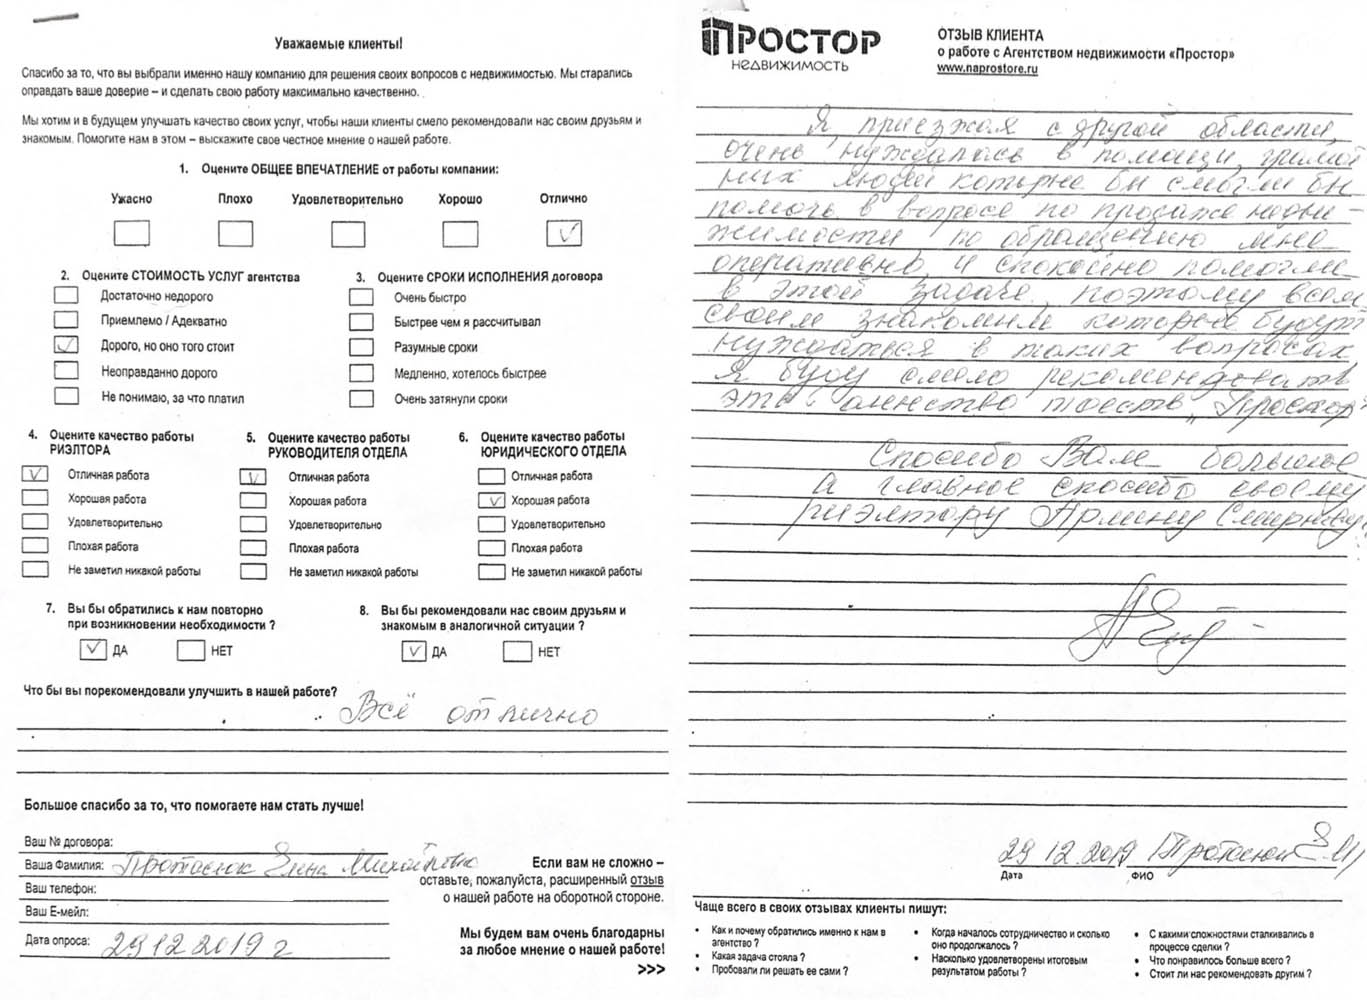 Уважаемые клиенты!
Спасибо за то, что вы выбрали именно нашу компанию для решения своих вопросов с недвижимостью. Мы старались
оправдать ваше доверие – и сделать свою работу максимально качественно.
Мы хотим и в будущем улучшать качество своих услуг, чтобы наши клиенты смело рекомендовали нас своим друзьям и
знакомым. Помогите нам в этом – выскажите свое честное мнение о нашей работе.
1. Оцените ОБЩЕЕ ВПЕЧАТЛЕНИЕ от работы компании:
Ужасно Плохо Удовлетворительно Хорошо Отлично
2. Оцените СТОИМОСТЬ УСЛУГ агентства
Достаточно недорого
Приемлемо / Адекватно
Дорого, но оно того стоит
Неоправданно дорого
Не понимаю, за что платил
3. Оцените СРОКИ ИСПОЛНЕНИЯ договора
Очень быстро
Быстрее чем я рассчитывал
Разумные сроки
Медленно, хотелось быстрее
Очень затянули сроки
4. Оцените качество работы
РИЭЛТОРА
Отличная работа
Хорошая работа
Удовлетворительно
Плохая работа
Не заметил никакой работы
5. Оцените качество работы
РУКОВОДИТЕЛЯ ОТДЕЛА
Отличная работа
Хорошая работа
Удовлетворительно
Плохая работа
Не заметил никакой работы
6. Оцените качество работы
ЮРИДИЧЕСКОГО ОТДЕЛА
Отличная работа
Хорошая работа
Удовлетворительно
Плохая работа
Не заметил никакой работы
7. Вы бы обратились к нам повторно
при возникновении необходимости ?
ДА НЕТ
8. Вы бы рекомендовали нас своим друзьям и
знакомым в аналогичной ситуации ?
ДА НЕТ
Что бы вы порекомендовали улучшить в нашей работе?
Всё отлично
Большое спасибо за то, что помогаете нам стать лучше!
Ваш № договора:
Ваша Фамилия: Протасюк Елена Михайловна
Ваш телефон:
Ваш Е-мейл:
Дата опроса: 29 12 2019 г
Если вам не сложно –
оставьте, пожалуйста, расширенный отзыв
о нашей работе на оборотной стороне.
Мы будем вам очень благодарны
за любое мнение о нашей работе!
>>>
ПРОСТОР
НЕДВИЖИМОСТЬ
ОТЗЫВ КЛИЕНТА
о работе с Агентством недвижимости «Простор»
www.naprostore.ru
Я, приезжая с другой области,
очень нуждалась в помощи, грамот
них людей которые бы смогли бы
помочь в вопросе по продаже недви-
жимости, по обращению мне
оперативно и спокойно помогли
в этой задаче, поэтому всем
своим знакомым которые будут
нуждаться в таких вопросах,
Я буду смело рекомендовать
это тоесть „Простор"
Спасибо Вам большое
а главное спасибо своему
риэлтору Смирнову
29 12 2019 Протасюк Е М
Дата ФИО
Чаще всего в своих отзывах клиенты пишут:
• Как и почему обратились именно к нам в
агентство ?
• Какая задача стояла ?
• Пробовали ли решать ее сами ?
• Когда началось сотрудничество и сколько
оно продолжалось ?
• Насколько удовлетворены итоговым
результатом работы ?
• С какими сложностями сталкивались в
процессе сделки ?
• Что понравилось больше всего ?
• Стоит ли нас рекомендовать другим ?